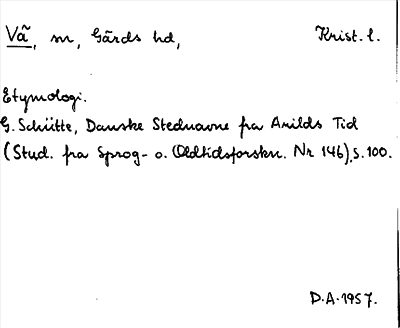 Vã, sn, Gärds hd, Krist. l.
Etymologi.
G. Schütte, Danske Stednavne fra Arilds Tid
(Stud. fra Sprog- o. Oldtidsforskn. Nr 146), s. 100.
D.A. 1957.